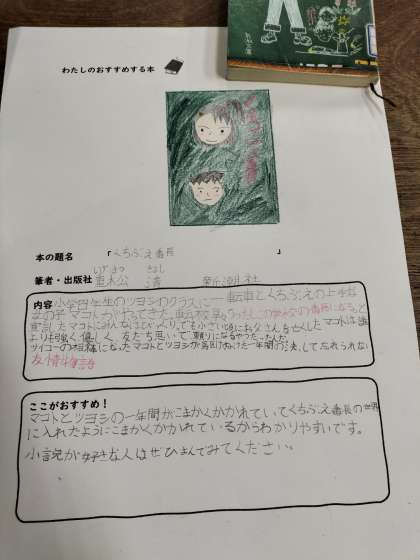 わたしのおすすめする本
くちぶえ番長
本の題名 「くちぶえ番長 」
しげまつ きよし
筆者・出版社 重松公 清 新潮社
内容 小学四年生のツヨシのクラスに一輪車とくちぶえの上手な
女の子、マコトがやってきた。転校早々「わたしこの学校の番長になる」と
宣言したマコトにみんなはびっくり。でも小さい頃にお父さんを亡くしたマコトは誰
よりも強く、優しく、友だち思いで、頼りになるやつだったんだ
サイコーの相棒になったマコトとツヨシが駆けぬけた一年間の、決して忘れられない
友情物語
ここがおすすめ!
マコトとツヨシの一年間がこまかくかかれていてくちぶえ番長の世界
に入れたようにこまかくかかれているからわかりやすいです。
小説が好きな人はぜひよんでみてください。